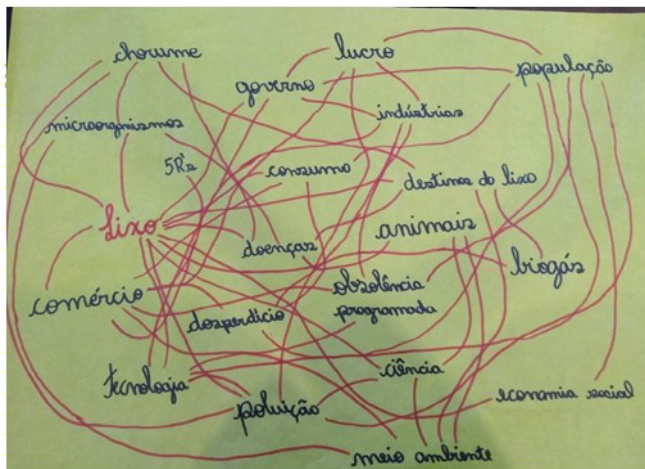 chorume
lucro
população
governo
indústrias
microorganismos
5R's
consumo
destinos do lixo
lixo
animais
doenças
biogás
comércio
obsolência
programada
desperdício
tecnologia
ciência
poluição
economia social
meio ambiente